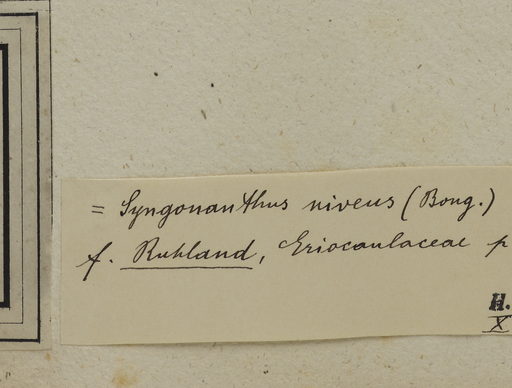 = Syngonanthus niveus (Bong.)
f. Ruhland, Eriocaulaceae p
H.
X